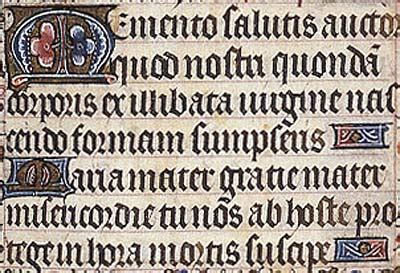 Memento salutis auctor
quod nostri quondā
corporis ex illibata uirgine nas
cendo formam sumpseris
Maria mater gratie mater
misericordie tu nos ab hoste pro
tege in hora mortis suscipe